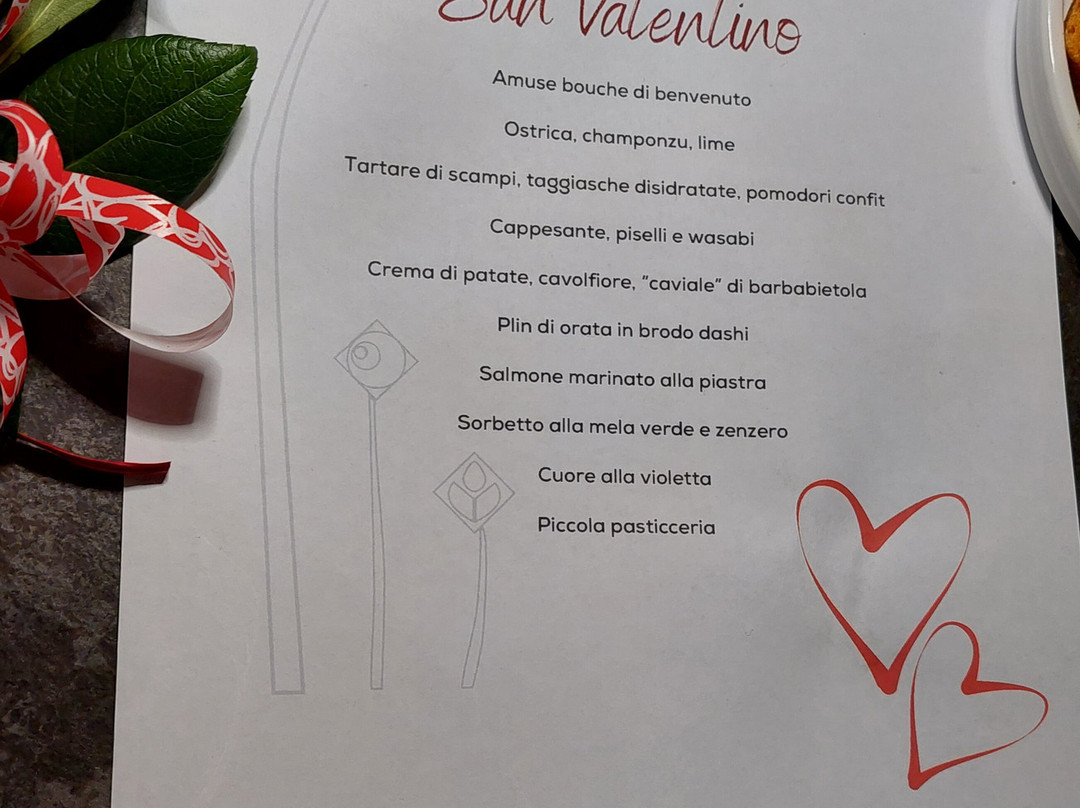 San Valentino
Amuse bouche di benvenuto
Ostrica, champonzu, lime
Tartare di scampi, taggiasche disidratate, pomodori confit
Cappesante, piselli e wasabi
Crema di patate, cavolfiore, "caviale" di barbabietola
Plin di orata in brodo dashi
Salmone marinato alla piastra
Sorbetto alla mela verde e zenzero
Cuore alla violetta
Piccola pasticceria